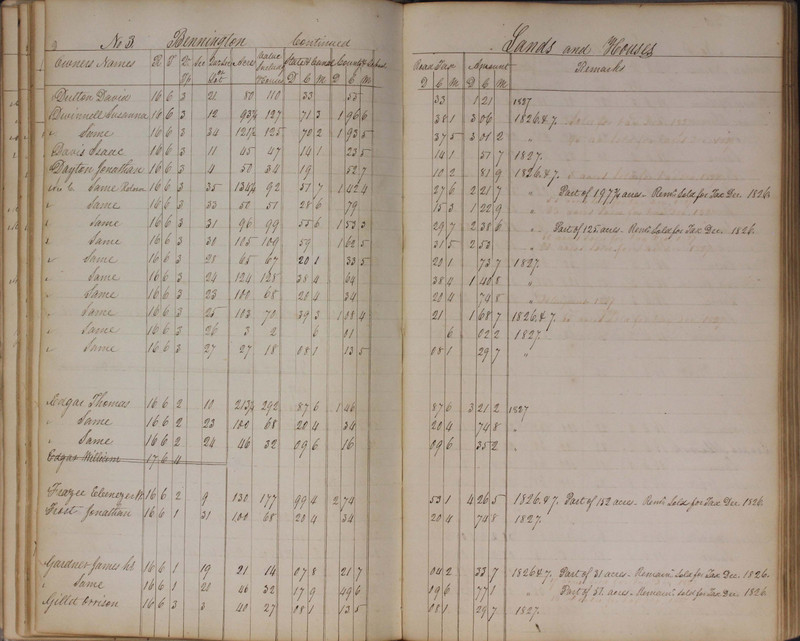 9 No 3. Bennington Continued Lands and Houses
Owners Names R T Sec Acres Value State & Canal County & School Road Tax Amount Remarks
Lot Houses D C M D C M D C M D C M
Dutton David 16 6 3 21 80 110 33 55 33 1 21 1827
Susanna 16 6 3 12 93¾ 127 71 3 1 96 6 38 1 3 06 1826 & 7.
" Same 16 6 3 34 121½ 125 70 2 1 93 5 37 5 3 01 2 "
Davis Isaac 16 6 3 11 45 47 14 1 23 5 14 1 51 7 1827.
Dayton Jonathan 16 6 3 4 50 34 19 52 7 10 2 81 9 1826 & 7.
Same 16 6 3 35 134¾ 92 51 7 1 42 4 27 6 2 21 7 " Part of 197¾ acres - Remr. Sold for Tax Dec. 1826
" Same 16 6 3 33 50 51 28 6 79 15 3 1 22 9 "
" Same 16 6 3 31 96 99 55 6 1 53 3 29 7 2 38 6 " Part of 125 acres - Remr. Sold for Tax Dec. 1826
" Same 16 6 3 30 105 109 59 1 62 5 31 5 2 53 "
" Same 16 6 3 28 65 67 20 1 33 5 20 1 73 7 1827.
" Same 16 6 3 24 124 128 38 4 64 38 4 1 40 8 "
" Same 16 6 3 23 100 68 20 4 34 20 4 74 8 "
" Same 16 6 3 25 103 70 39 3 1 08 4 21 1 68 7 1826 & 7
" Same 16 6 3 26 3 2 6 01 6 02 2 1827
" Same 16 6 3 27 27 18 08 1 13 5 08 1 29 7 "
Edgar Thomas 16 6 2 10 213¾ 292 87 6 1 46 87 6 3 21 2 1827
" Same 16 6 2 23 100 68 20 4 34 20 4 74 8 "
" Same 16 6 2 24 46 32 09 6 16 09 6 35 2 "
Edgar William 17 6 4
Frazee Ebenezer 16 6 2 9 130 177 99 4 2 74 53 1 4 26 5 1826 & 7. Part of 182 acres - Remr. Sold for Tax Dec. 1826
Frost Jonathan 16 6 1 31 100 68 20 4 34 20 4 74 8 1827.
Gardner James 16 6 1 19 21 14 07 8 21 7 04 2 33 7 1826 & 7. Part of 31 acres - Remain. Sold for Tax Dec. 1826.
" Same 16 6 1 20 46 32 17 9 49 6 09 6 77 1 " Part of 52 acres - Remain. Sold for Tax Dec. 1826
Gillet Orrison 16 6 3 3 40 27 08 1 13 5 08 1 29 7 1827.